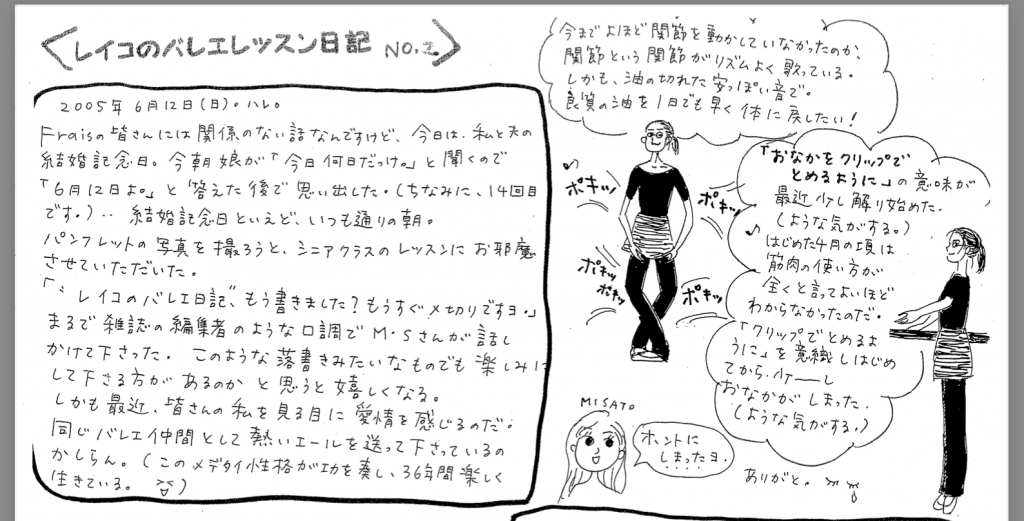 〈レイコのバレエレッスン日記 NO.2〉
2005年 6月12日(日)。ハレ。
Fraisの皆さんには関係のない話なんですけど、今日は、私と夫の
結婚記念日。今朝 娘が「今日何日だっけ。」と聞くので
「6月12日よ。」と 答えた後で思い出した。(ちなみに、14回目
です。)‥ 結婚記念日といえど、いつも通りの朝。
パンフレットの写真を撮ろうと、シニアクラスのレッスンにお邪魔
させていただいた。
「"レイコのバレエ日記"、もう書きました?もうすぐ〆切りですヨ。」
まるで 雑誌の編集者のような口調でM・Sさんが話し
かけて下さった。このような落書きみたいなものでも楽しみに
して下さる方が あるのか と思うと嬉しくなる。
しかも最近、皆さんの私を見る目に愛情を感じるのだ。
同じバレエ仲間として熱いエールを送って下さっているの
かしらん。(このメデタイ性格が功を奏し、36年間楽しく
生きている。)
今まで よほど関節を動かしていなかったのか、
関節という関節がリズムよく歌っている。
しかも、油の切れた安っぽい音で。
良質の油を1日でも早く体に戻したい!
♪
ポキッ
ポキッ
ポキッ
ポキッ
ポキッ
♪
「おなかをクリップで
とめるように」の意味が
最近少し解り始めた.
(ような気がする。)
はじめた4月の頃は
筋肉の使い方が
全くと言ってよいほど
わからなかったのだ。
「クリップでとめるよ
うに」を意識しはじめ
てから、少ーし
おなかがしまった.
(ような気がする。)
MISATO
ホントに
しまったヨ.
ありがと。